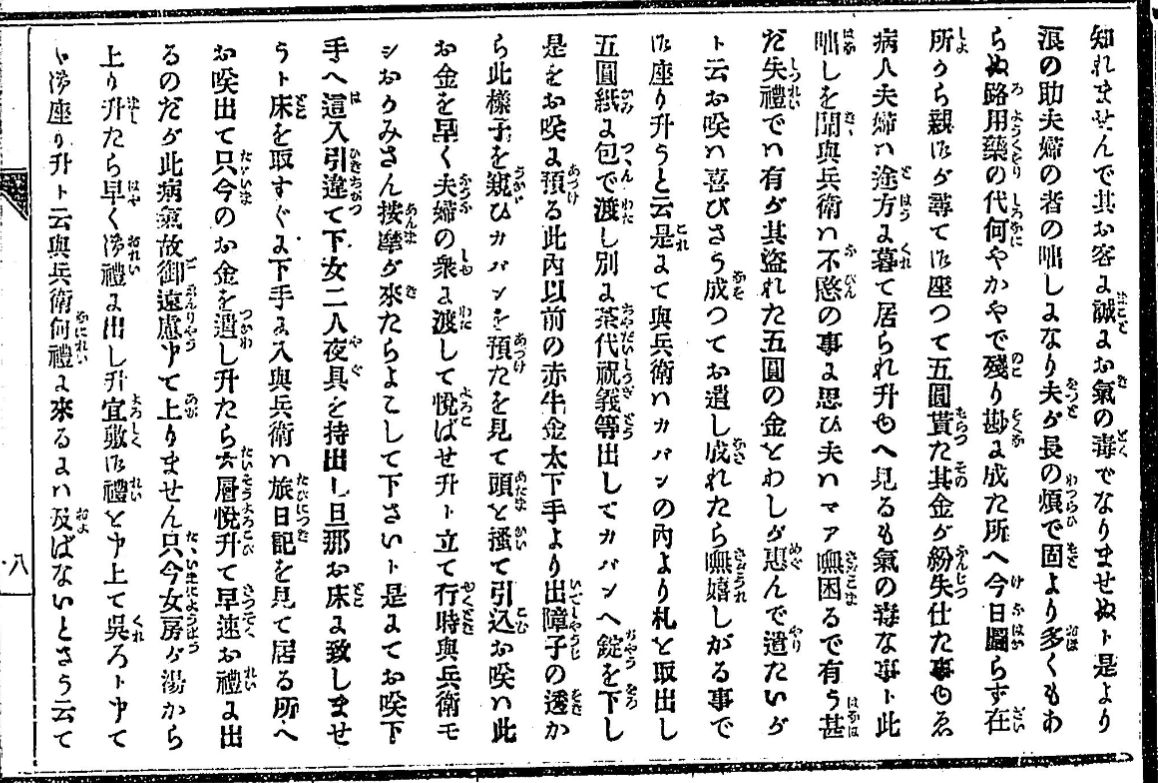 知れませんで其お客よ誠よお氣の毒でなりませぬト是より
浪の助夫婦の者の咄しよなり夫ガ長の煩で固より多くもわ
らぬ路用藥の代何やかやで殘り尠よ成た所へ今日圖らず在
所うら親仁ガ尋て仁座つて五圓貰た其金ガ紛失仕た事もゑ
病人夫婦ハ途方よ暮て居られ升もへ見るも氣の毒な事ト此
咄しを聞與兵衛ハ不愍の事よ思ひ夫ハマア嘸困るで有う甚
だ失禮でハ有ガ其盗れた五圓の金とわしガ惠んで遣たいガ
ト云お咲ハ喜びさう成つてお遣し成れたら嘸嬉しがる事で
仁座り升うと云是よて與兵衛ハカバンの内より札と取出し
五圓紙よ包で渡し別よ茶代祝義等出してカバンへ錠を下し
是をお咲よ預る此内以前の赤牛金太下手より出障子の透か
ら此樣子を窺ひカバンを預たを見て頭と掻て引込お咲ハ此
お金を早く夫婦の衆よ渡して悅ばせ升ト立て行時與兵衛モ
シおうみさん按摩ガ來たらよこして下さいト是よてお咲下
手へ這入引違て下女二人夜具を持出し旦那お床よ致しませ
うト床を取すぐよ下手よ入與兵衛ハ旅日記を見て居る所へ
お咲出て只今のお金を遣し升たら大層悅升て早速お禮よ出
るのだガ此病氣故御遠慮申て上りません只今女房ガ湯から
上り升たら早く御禮よ出し升宜敷仁禮と申上て呉ろト申て
ゝ御座り升ト云與兵衛何禮よ來るよハ及ばないとさう云て
八